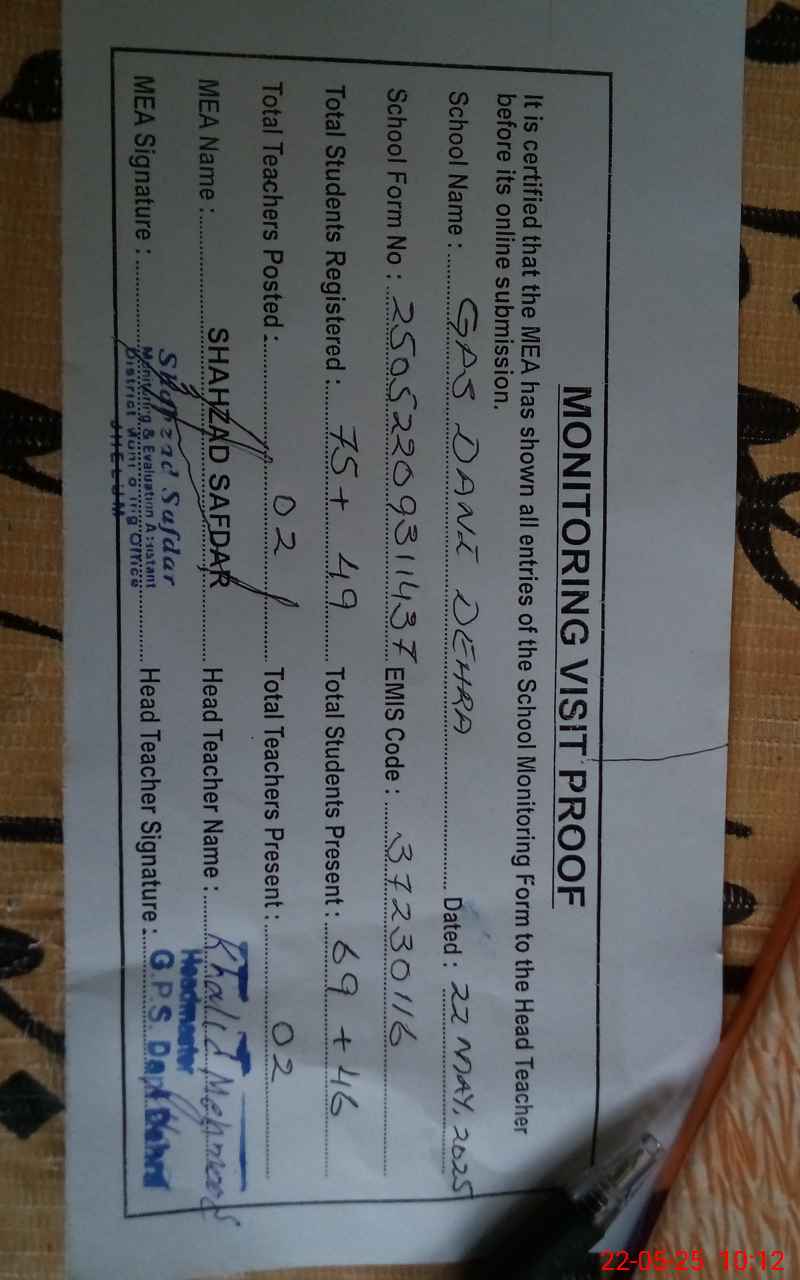 MONITORING VISIT PROOF
It is certified that the MEA has shown all entries of the School Monitoring Form to the Head Teacher
before its online submission.
School Name : GAS DANI DEHRA Dated : 22 MAY, 2025
School Form No : 25052209311437 EMIS Code : 37230116
Total Students Registered : 75 + 49 Total Students Present : 69 + 46
Total Teachers Posted : 02 Total Teachers Present : 02
MEA Name : SHAHZAD SAFDAR Head Teacher Name : Khalid Mehmood
MEA Signature : Head Teacher Signature :
Shahzad Safdar
Monitoring & Evaluation Assistant
District Monitoring Office
JHELUM
Headmaster
G.P.S. Dani Dehra
22-05-25 10:12